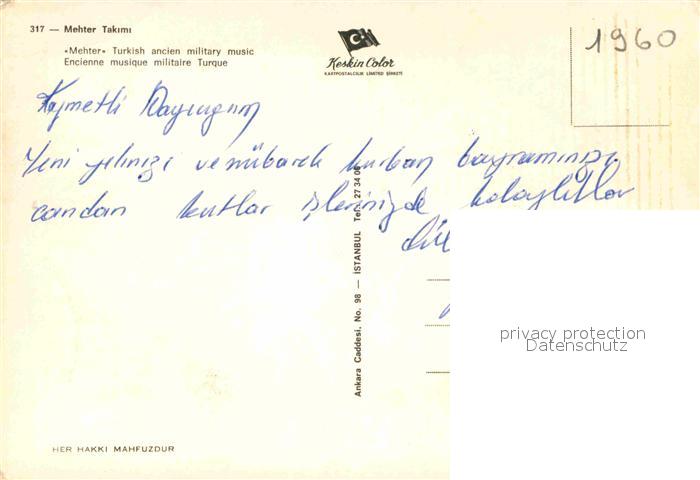 317 — Mehter Takımı
«Mehter» Turkish ancien military music
Encienne musique militaire Turque
Keskin Color
KARTPOSTALCILIK LİMİTED ŞİRKETİ
1960
Kıymetli Dayıcığım
Yeni yılınızı ve mübarek kurban bayramınızı
candan kutlar işlerinizde kolaylıklar
Ankara Caddesi, No. 98 — İSTANBUL Tel. 27 34 06
privacy protection
Datenschutz
HER HAKKI MAHFUZDUR